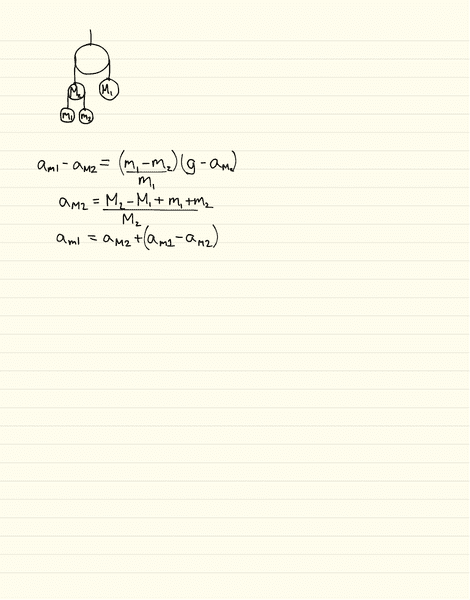 M₂ M₁
m₁ m₂
aₘ₁ - a_M₂ = (m₁ - m₂)/m₁ (g - a_M₂)
a_M₂ = (M₂ - M₁ + m₁ + m₂)/M₂
aₘ₁ = a_M₂ + (aₘ₁ - a_M₂)